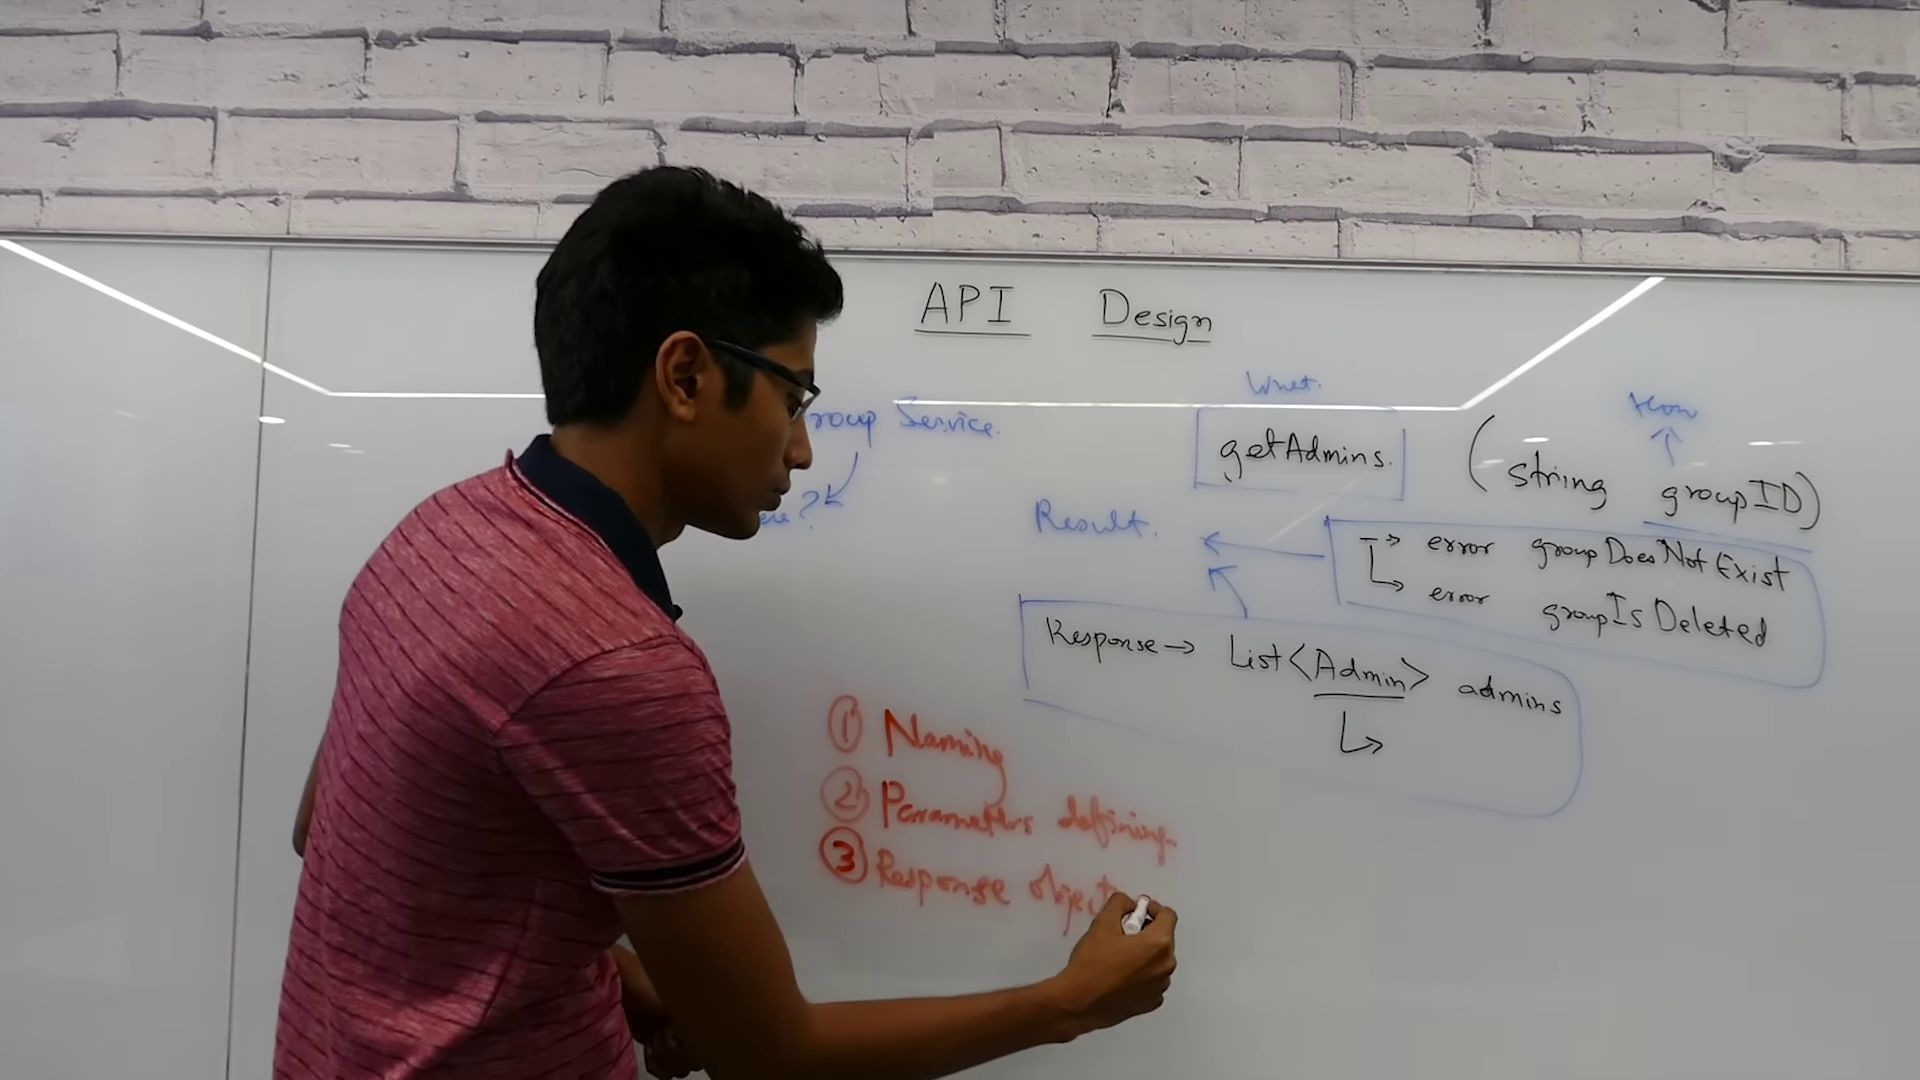 API Design
What.
How
roup Service.
getAdmins. (string groupID)
ere?
Result.
error groupDoesNotExist
error groupIsDeleted
Response → List<Admin> admins
① Naming
② Parameters defining
③ Response object